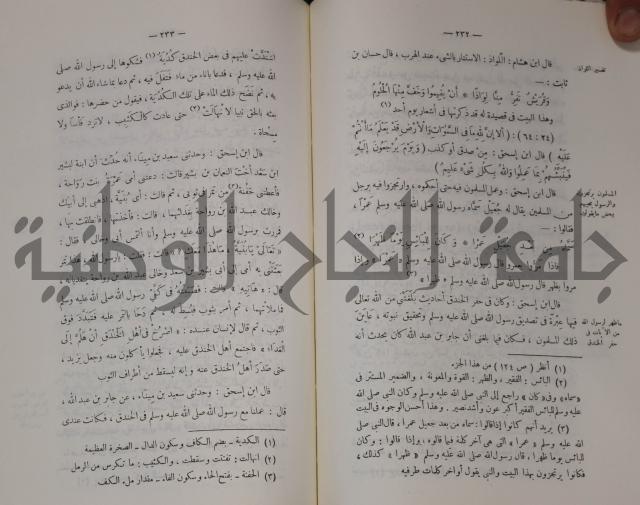 — ٢٣٢ —
قال ابن هشام : اللواذ : الاستتار بالشيء عند الهرب ، قال حسان بن
تفسير اللواذ
ثابت : —
وقريش تفر منا لواذا * أن يقيموا وخف منها الحلوم
وهذا البيت في قصيدة له قد ذكرتها في أشعار يوم أحد (١)
(٢٤ : ٦٤) : ( ألا إن لله ما في السموات والأرض قد يعلم ما أنتم
عليه ) قال ابن إسحق : من صدق أو كذب ( ويوم يرجعون إليه
فينبئهم بما عملوا والله بكل شيء عليم )
قال ابن إسحق : وعمل المسلمون فيه حتى أحكموه ، وارتجزوا فيه برجل
المسلمون
من المسلمين يقال له جعيل سماه رسول الله صلى الله عليه وسلم عمرا ،
فقالوا : —
سماه من بعد جعيل عمرا * وكان للبائس يوما ظهرا (٢)
فإذا مروا بعمرو قال رسول الله صلى الله عليه وسلم « عمرا » وإذا
مروا بظهر قال رسول الله صلى الله عليه وسلم « ظهرا » (٣)
قال ابن إسحق : وكان في حفر الخندق أحاديث بلغتني من الله تعالى
فيها عبرة في تصديق رسول الله صلى الله عليه وسلم وتحقيق نبوته ، عاين
ذلك المسلمون ، فكان فيما بلغني أن جابر بن عبد الله كان يحدث أنه
حفر الخندق
(١) أنظر ( ص ١٢٤ ) من هذا الجزء
(٢) البائس : الفقير ، والظهر : القوة والمعونة ، والضمير المستتر في
« سماه » وفي « كان » راجع إلى النبي صلى الله عليه وسلم وكان النبي صلى الله
عليه وسلم للبائس الفقير أكبر عون وأشد نصير . وهذا أحسن الوجوه في البيت
(٣) يريد أنهم كانوا إذا قالوا : سماه من بعد جعيل عمرا ، قال النبي صلى
الله عليه وسلم « عمرا » التي هي آخر كلمة فيما قالوه ، وإذا قالوا : وكان
للبائس يوما ظهرا ، قال رسول الله صلى الله عليه وسلم « ظهرا » كذلك ،
فكانوا يرتجزون بهذا البيت والنبي يقول أواخر كلمات طرفيه
— ٢٣٣ —
اشتدت عليهم في بعض الخندق كدية (١) فشكوها إلى رسول الله صلى
الله عليه وسلم ، فدعا بإناء من ماء فتفل فيه ، ثم دعا بما شاء الله أن يدعو
به ، ثم نضح ذلك الماء على تلك الكدية ، فيقول من حضرها : فوالذي
بعثه بالحق نبيا لانهالت (٢) حتى عادت كالكثيب ، لا ترد فأسا ولا
مسحاة ،
قال ابن إسحق : وحدثني سعيد بن مينا ، أنه حدث أن ابنة لبشير
ابن سعد أخت النعمان بن بشير قالت : دعتني أمي عمرة بنت رواحة ،
فأعطتني حفنة (٣) من تمر في ثوبي ، ثم قالت : أي بنية ، اذهبي إلى أبيك
وخالك عبد الله بن رواحة بغدائهما ، قالت : فأخذتها ، فانطلقت بها ،
فمررت برسول الله صلى الله عليه وسلم وأنا ألتمس أبي وخالي ، فقال :
« تعالي يا بنية ، ما هذا معك ؟ » قالت : فقلت : يا رسول الله ، هذا تمر
بعثتني به أمي إلى أبي بشير بن سعد وخالي عبد الله بن رواحة يتغديانه ،
قال : « هاتيه » قالت : فصببته في كفي رسول الله صلى الله عليه وسلم
فما ملأتهما ، ثم أمر بثوب فبسط له ، ثم دحا بالتمر عليه فتبدد فوق
الثوب ، ثم قال لإنسان عنده : « اصرخ في أهل الخندق أن هلم إلى
الغداء » فاجتمع أهل الخندق عليه ، فجعلوا يأكلون منه وجعل يزيد ،
حتى صدر أهل الخندق عنه وإنه ليسقط من أطراف الثوب
قال ابن إسحق : وحدثني سعيد بن مينا ، عن جابر بن عبد الله ،
قال : عملنا مع رسول الله صلى الله عليه وسلم في الخندق ، فكانت عندي
(١) الكدية - بضم الكاف وسكون الدال - الصخرة العظيمة
(٢) انهالت : تفتتت وسقطت ، والكثيب : ما تكدس من الرمل
(٣) الحفنة - بفتح الحاء وسكون الفاء - مقدار ملء الكف
جامعة النجاح الوطنية